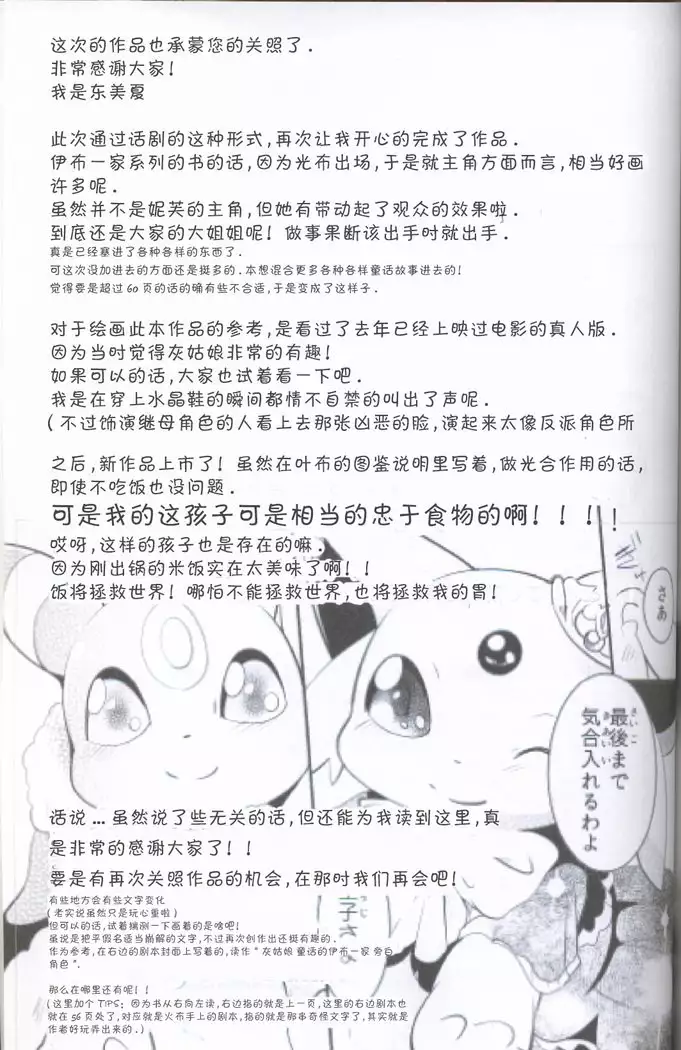 这次的作品也承蒙您的关照了.
非常感谢大家!
我是东美夏
此次通过话剧的这种形式,再次让我开心的完成了作品.
伊布一家系列的书的话,因为光布出场,于是就主角方面而言,相当好画
许多呢.
虽然并不是妮芙的主角,但她有带动起了观众的效果啦.
到底还是大家的大姐姐呢! 做事果断该出手时就出手.
真是已经塞进了各种各样的东西了.
可这次没加进去的方面还是挺多的.本想混合更多各种各样童话故事进去的!
觉得要是超过 60 页的话的确有些不合适,于是变成了这样子.
对于绘画此本作品的参考,是看过了去年已经上映过电影的真人版.
因为当时觉得灰姑娘非常的有趣!
如果可以的话,大家也试着看一下吧.
我是在穿上水晶鞋的瞬间都情不自禁的叫出了声呢.
(不过饰演继母角色的人看上去那张凶恶的脸,演起来太像反派角色所
之后,新作品上市了! 虽然在叶布的图鉴说明里写着,做光合作用的话,
即使不吃饭也没问题.
可是我的这孩子可是相当的忠于食物的啊!!!!
哎呀,这样的孩子也是存在的嘛.
因为刚出锅的米饭实在太美味了啊!!
饭将拯救世界! 哪怕不能拯救世界,也将拯救我的胃!
さあ
最後まで
気合入れるわよ
话说 ... 虽然说了些无关的话,但还能为我读到这里,真
是非常的感谢大家了!!
要是有再次关照作品的机会,在那时我们再会吧!
有些地方会有些文字变化
(老实说虽然只是玩心重啦)
但可以的话,试着揣测一下画着的是啥吧!
虽说是把平假名适当崩解的文字,不过再次创作出还挺有趣的.
作为参考,在右边的剧本封面上写着的,读作 " 灰姑娘 童话的伊布一家 旁白
角色 ".
那么在哪里还有呢!!
(这里加个 TIPS: 因为书从右向左读,右边指的就是上一页,这里的右边剧本也
就在 56 页处了,对应就是火布手上的剧本,指的就是那串奇怪文字了,其实就是
作者好玩弄出来的.)